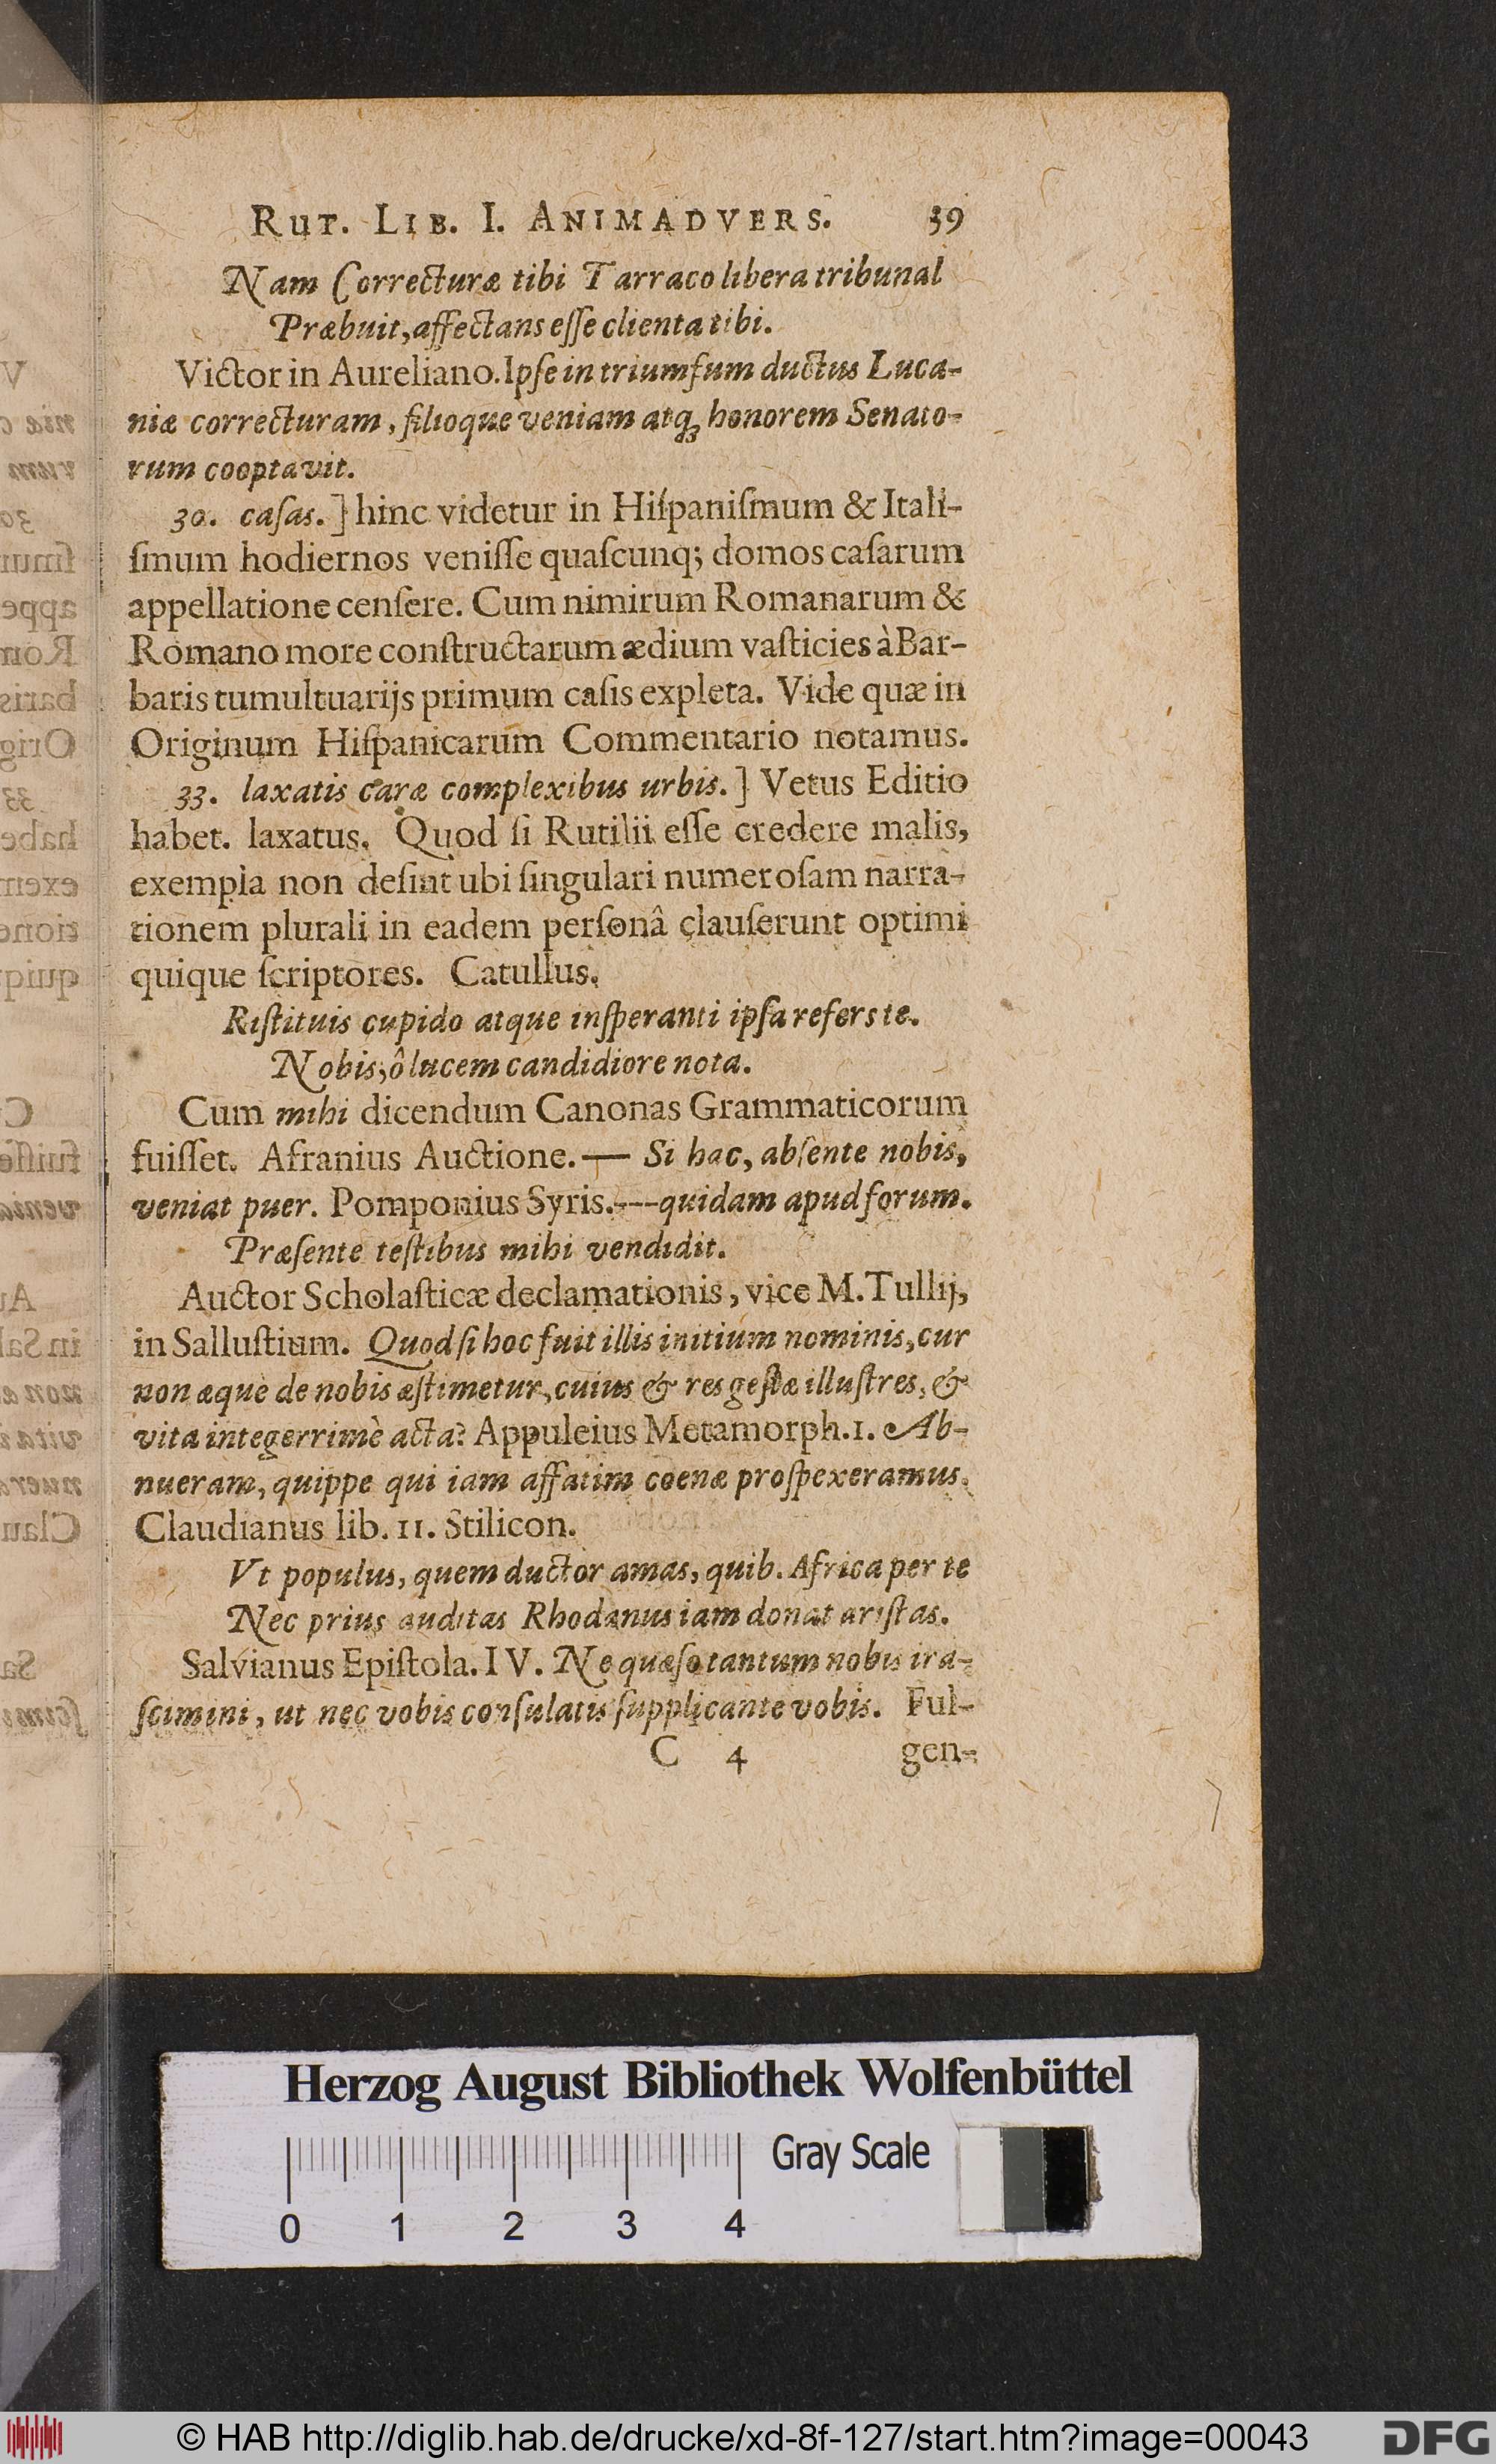 RUT. LIB. I. ANIMADVERS. 39
Nam Correcturæ tibi Tarraco libera tribunal
Præbuit, affectans esse clienta tibi.
Victor in Aureliano. Ipſe in triumfum ductus Luca-
niæ correcturam, filioque veniam atq; honorem Senato-
rum cooptavit.
30. caſas.] hinc videtur in Hiſpaniſmum & Itali-
ſmum hodiernos veniſſe quaſcunq; domos caſarum
appellatione cenſere. Cum nimirum Romanarum &
Romano more conſtructarum ædium vaſticies à Bar-
baris tumultuarijs primum caſis expleta. Vide quæ in
Originum Hiſpanicarum Commentario notamus.
33. laxatis caræ complexibus urbis.] Vetus Editio
habet. laxatus. Quod ſi Rutilii eſſe credere malis,
exempla non deſint ubi ſingulari numeroſam narra-
tionem plurali in eadem perſonâ clauſerunt optimi
quique ſcriptores. Catullus.
Riſtituis cupido atque inſperanti ipſa refers te.
Nobis, ô lucem candidiore nota.
Cum mihi dicendum Canonas Grammaticorum
fuiſſet. Afranius Auctione. — Si hac, abſente nobis,
veniat puer. Pomponius Syris. --- quidam apud forum.
Præſente teſtibus mihi vendidit.
Auctor Scholaſticæ declamationis, vice M. Tullij,
in Salluſtium. Quod ſi hoc fuit illis initium nominis, cur
non æque de nobis æſtimetur, cuius & res geſtæ illuſtres, &
vita integerrimè acta? Appuleius Metamorph. 1. Ab-
nueram, quippe qui iam affatim coenæ proſpexeramus.
Claudianus lib. II. Stilicon.
Vt populus, quem ductor amas, quib. Africa per te
Nec prius auditas Rhodanus iam donat ariſtas.
Salvianus Epiſtola. IV. Ne quæſo tantum nobis ira-
ſcimini, ut nec vobis conſulatis ſupplicante vobis. Ful-
C 4 gen-
Herzog August Bibliothek Wolfenbüttel
Gray Scale
0 1 2 3 4
© HAB http://diglib.hab.de/drucke/xd-8f-127/start.htm?image=00043
DFG